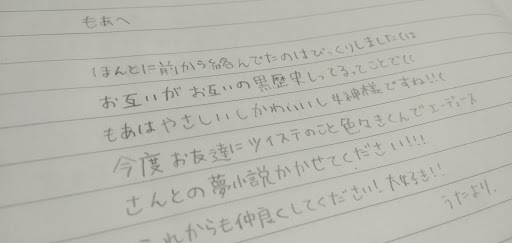 もあへ
ほんとに前から絡んでたのはびっくりしましたくに
お互いがお互いの黒歴史しってるってことで((
もあはやさしいしかわいいし女神様ですね!!(
今度お友達にツイステのこと色々きくんでエーデュース
さんとの夢小説かかせてください!!!
これからも仲良くしてください!大好き!!
うたより、